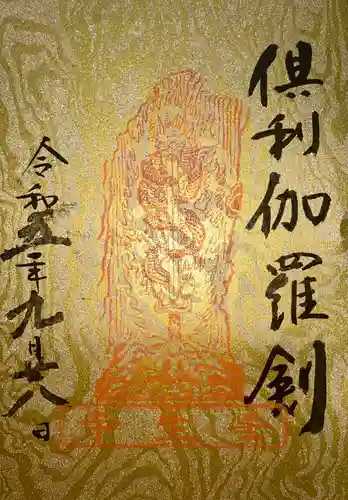 俱利伽羅剣
令和五年九月廿八日